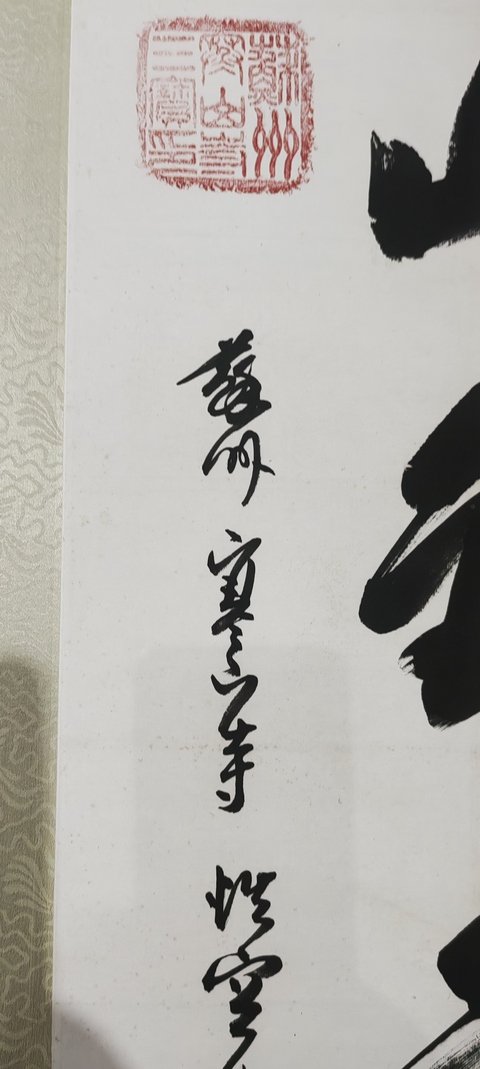 蘇州
寒山寺
三寶印
蘇州寒山寺性空